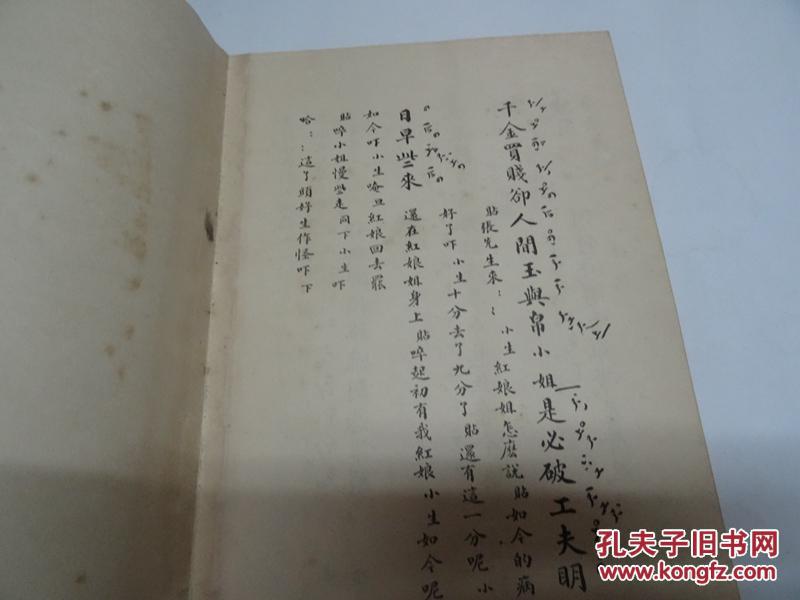 千金買賤卻人間玉與帛小姐是必破工夫明
貼張先生來：：小生紅娘姐怎麼說貼如今的病
好了吓小生十分去了九分了貼還有這一分呢小
日早些來還在紅娘姐身上貼啐起初有我紅娘小生如今呢
如今吓小生唵旦紅娘回去罷
貼啐小姐慢些走同下小生吓
哈：：這丫頭好生作怪吓下
孔夫子旧书网
www.kongfz.com